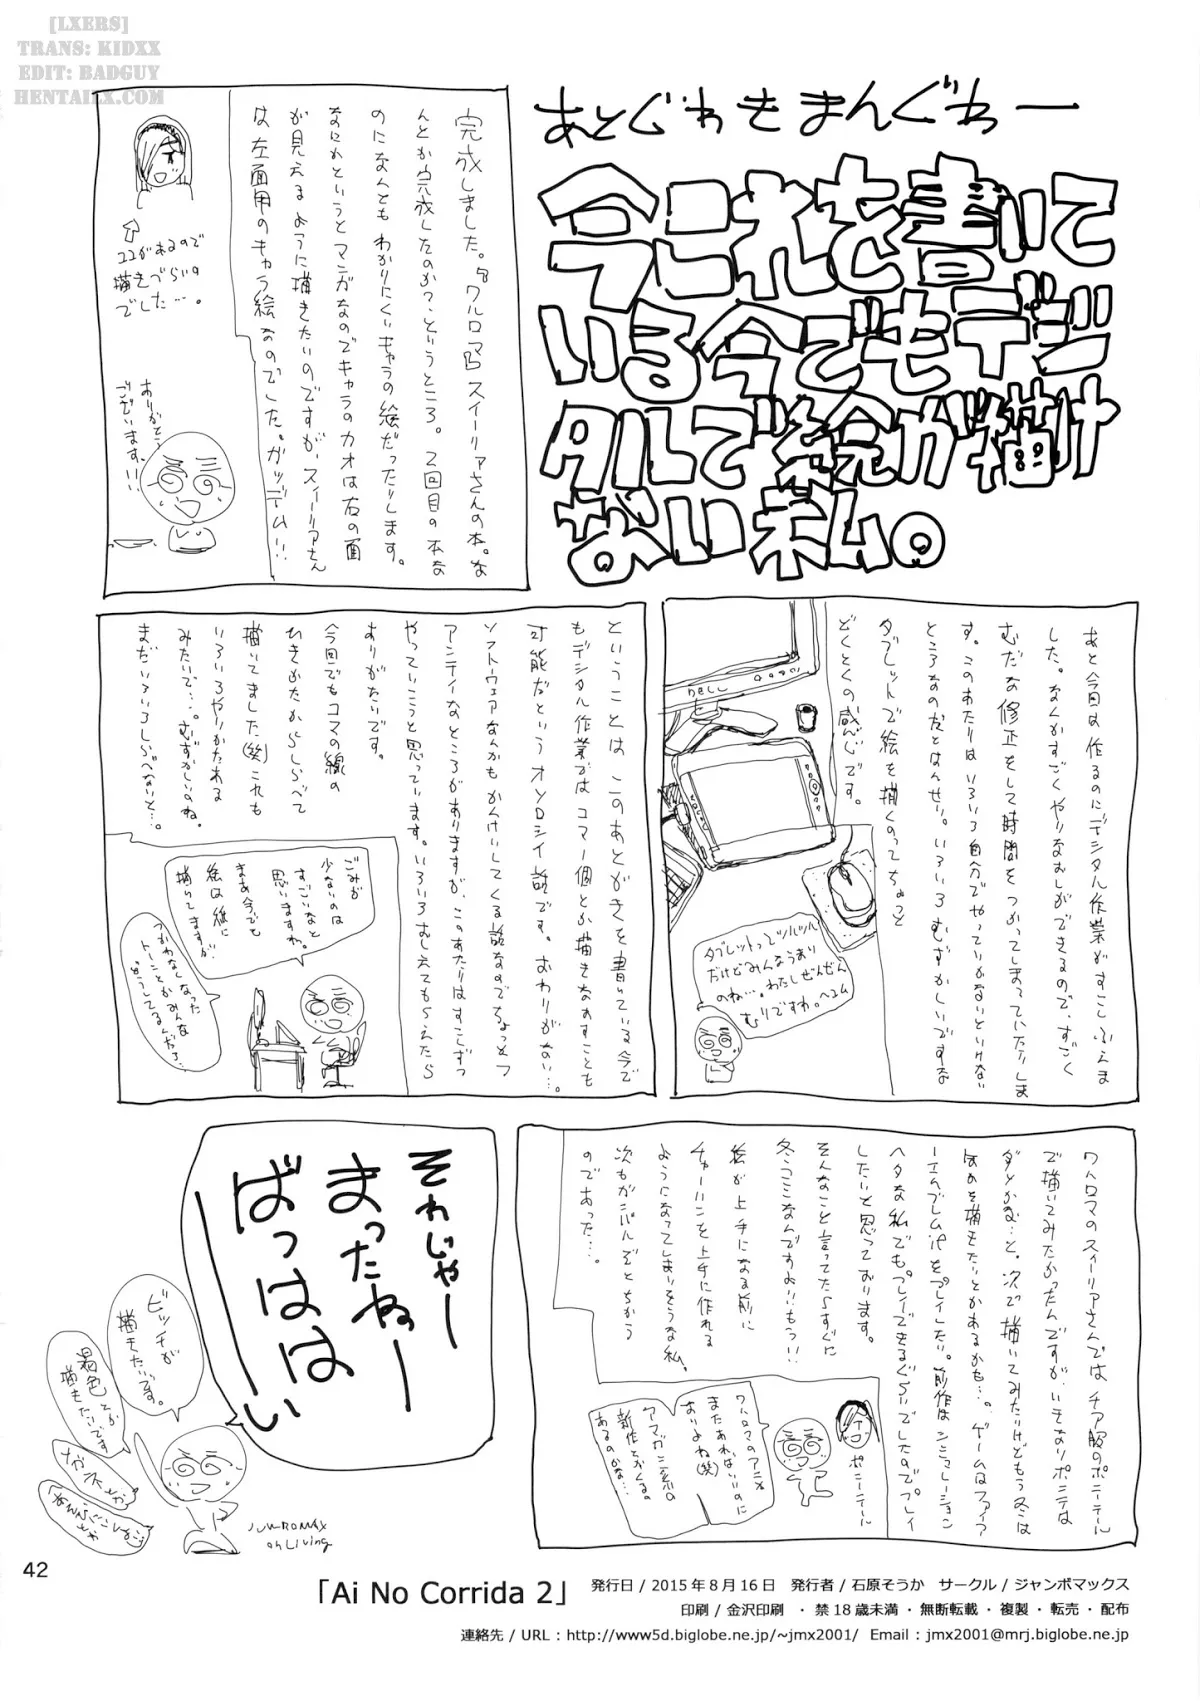 [LXERS]
TRANS: KIDXX
EDIT: BADGUY
HENTAILX.COM
あとぐわきまんぐわー
今これを書いて
いる今でもデジ
タルで絵が描け
ない私。
完成しました。『ワルロマ』スイーリアさんの本。な
んとか完成したのか?というところ。2回目の本な
のになんともわかりにくいキャラの絵だったりします。
なにかというとマンガなのでキャラのカオは右の面
が見えるように描きたいのですが、スイーリアさん
は左面用のキャラ絵なのでした。ガッデム!!
ココがあるので
描きづらいの
でした…。
ありがとう
ございます!!
あと今回は作るのにデジタル作業がすこしふえま
した。なんかすごくやりなおしができるので、すごく
むだな修正をして時間をつかってしまっていたりしま
す。このあたりはいろいろ自分でやっていかないといけない
ところなのだとはんせい。いろいろむずかしいですな
タブレットで絵を描くのってちょっと
どくとくの感じです。
DELL
タブレットってツルツル
だけどみんなうまい
のね…。わたしぜんぜん
むりですわ。
ということはこのあとがきを書いている今で
もデジタル作業ではコマ一個とか描きなおすことも
可能だというオソロシイ話です。おわりがない…。
ソフトウェアなんかもかんけいしてくる話なのでちょっとフ
アンティなところがありますが、このあたりはすこしずつ
やっていこうと思っています。いろいろおしえてもらえたら
ありがたいです。
今回でもコマの線の
ひきかたからしらべて
描いてました(笑)これも
いろいろやりかたある
みたいで…。むずかしいのね。
まだいろいろしらべないと…。
ごみが
少ないのは
すごいなと
思いますわ。
まあ今でも
絵は紙に
描いてますが
つかわなくなった
トーンとかみんな
どうしてるんだろ…
ワルロマのスイーリアさんではチア服のポニーテール
で描いてみたかったんですが、いきなりポニテは
ダメかな…と。次で描いてみたいけどもう冬は
したいと思っております。
そんなこと言ってたらすぐに
冬コミなんですよ!!もうっ!!
絵が上手になる前に
チャーハンを上手に作れる
ようになってしまいそうな私。
次もガンバルぞとちかう
のであった…。
ポニーテール
ワルロマのアニメ
またあればいいのに
ありよね(笑)
それじゃー
まったねー
ばっははーい
ビッチが
描きたいです。
褐色とか
描きたいです
メガネとか
JUMBOMAX
on Living
42
「Ai No Corrida 2」
発行日 / 2015年8月16日 発行者 / 石原そうか サークル / ジャンボマックス
印刷 / 金沢印刷 ・ 禁18歳未満・無断転載・複製・転売・配布
連絡先 / URL : http://www5d.biglobe.ne.jp/~jmx2001/ Email : jmx2001@mrj.biglobe.ne.jp